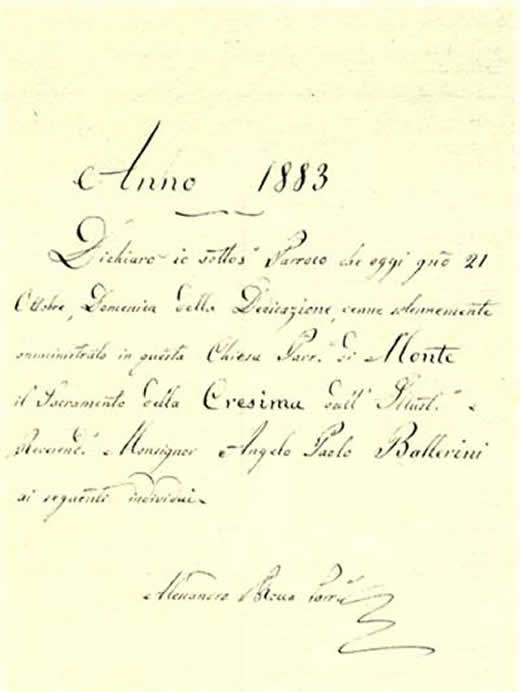 Anno 1883
Dichiaro io sottos.º Parroco che oggi gño 21
Ottobre, Domenica della Dedicazione, venne solennemente
amministrato in questa Chiesa Parr.ˡᵉ di Monte
il Sacramento della Cresima dall' Illust.º e
Reverend.º Monsignor Angelo Paolo Ballerini
ai seguenti individui.
Alessandro Parr.º